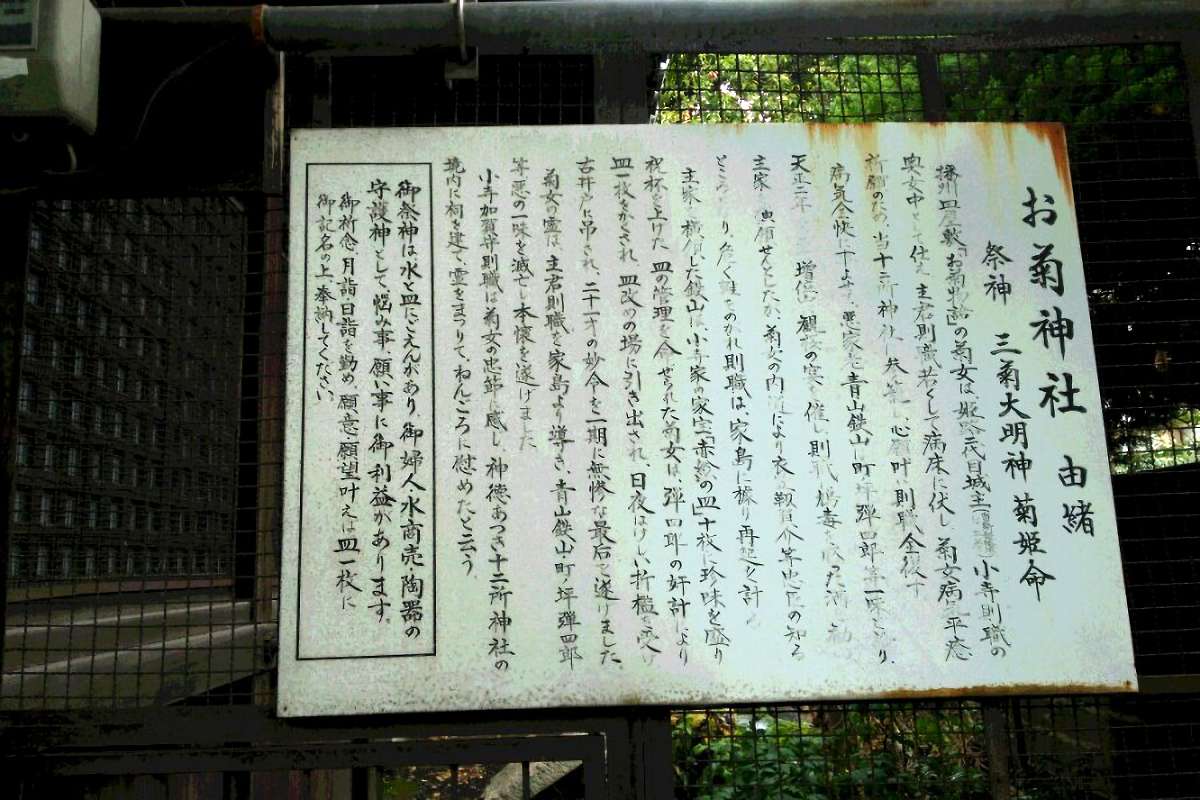 お菊神社 由緒
祭神 三菊大明神 菊姫命
播州皿屋敷「お菊物語」の菊女は、姫路 代目城主 小寺則職の
奥女中として仕え、主君則職若くして病床に伏し、菊女病気平癒
祈願のため、当十二所神社 矢 心願叶 則職全復す
病気全快に十よ 悪家老青山鉄山 町坪弾四郎等一味となり、
天正二年 増位 観桜の宴を催し則職 毒を
主家 横領せんとしたが、菊女の内 により衣 靱負介等忠臣の知る
ところ り、危く難をのがれ則職は、家島に穢り再起を計
主家を横領した鉄山は、小寺家の家宝「赤絵の皿」十枚に珍味を盛り
祝杯を上げた 皿の管理を命ぜられた菊女は、弾四郎の奸計 より
皿一枚をかくされ、皿改めの場に引き出され、日夜はげしい折檻を受け
古井戸に吊され、二十一才の妙令を一期に無惨な最后を遂げました
菊女の霊は、主君則職を家島より導き、青山鉄山・町ノ坪弾四郎
等悪の一味を滅亡し本懐を遂げました
小寺加賀守則職は菊女の忠節に感じ、神徳あつき十二所神社の
境内に祠を建て、霊をまつりて、ねんごろに慰めたと云う、
御祭神は水と皿にごえんがあり、御婦人・水商売・陶器の
守護神として、悩み事、願い事に御利益があります。
御祈念、月詣、日詣を勤め、願意・願望叶えば皿一枚に
御記名の上奉納してください。